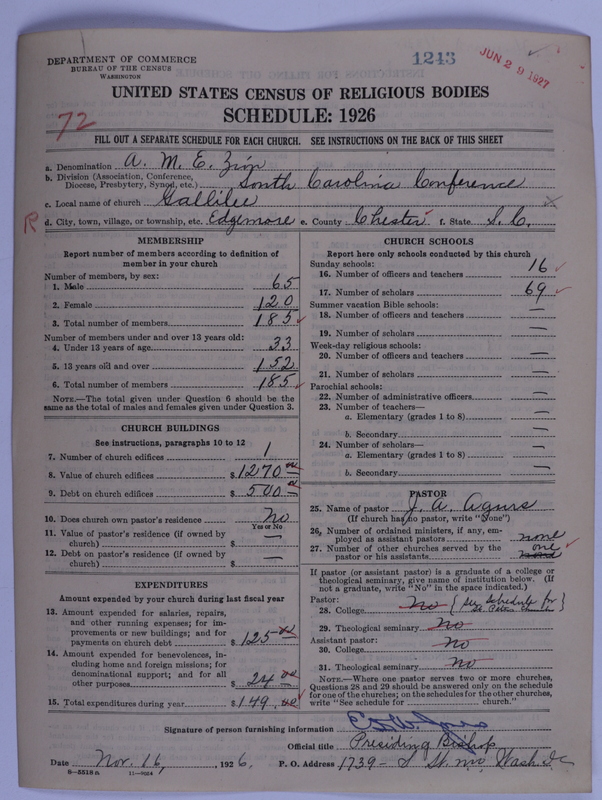 DEPARTMENT OF COMMERCE
BUREAU OF THE CENSUS
WASHINGTON
1243
JUN 29 1927
UNITED STATES CENSUS OF RELIGIOUS BODIES
SCHEDULE: 1926
72
FILL OUT A SEPARATE SCHEDULE FOR EACH CHURCH. SEE INSTRUCTIONS ON THE BACK OF THIS SHEET
a. Denomination A. M. E. Zion
b. Division (Association, Conference, Diocese, Presbytery, Synod, etc.) South Carolina Conference
c. Local name of church Gallilee
R
d. City, town, village, or township, etc. Edgemore e. County Chester f. State S. C.
MEMBERSHIP
Report number of members according to definition of
member in your church
Number of members, by sex:
1. Male 65
2. Female 120
3. Total number of members 185
Number of members under and over 13 years old:
4. Under 13 years of age 33
5. 13 years old and over 152
6. Total number of members 185
NOTE.—The total given under Question 6 should be the
same as the total of males and females given under Question 3.
CHURCH BUILDINGS
See instructions, paragraphs 10 to 12
7. Number of church edifices 1
8. Value of church edifices $ 1270 00
9. Debt on church edifices $ 500 00
10. Does church own pastor's residence No
Yes or No
11. Value of pastor's residence (if owned by
church) $ —
12. Debt on pastor's residence (if owned by
church) $ —
EXPENDITURES
Amount expended by your church during last fiscal year
13. Amount expended for salaries, repairs,
and other running expenses; for im-
provements or new buildings; and for
payments on church debt $ 125 00
14. Amount expended for benevolences, in-
cluding home and foreign missions; for
denominational support; and for all
other purposes $ 24 00
15. Total expenditures during year $ 149.00
CHURCH SCHOOLS
Report here only schools conducted by this church
Sunday schools:
16. Number of officers and teachers 16
17. Number of scholars 69
Summer vacation Bible schools:
18. Number of officers and teachers —
19. Number of scholars —
Week-day religious schools:
20. Number of officers and teachers —
21. Number of scholars —
Parochial schools:
22. Number of administrative officers —
23. Number of teachers—
a. Elementary (grades 1 to 8) —
b. Secondary —
24. Number of scholars—
a. Elementary (grades 1 to 8) —
b. Secondary —
PASTOR
25. Name of pastor J. A. Agurs
(If church has no pastor, write "None")
26. Number of ordained ministers, if any, em-
ployed as assistant pastors none
27. Number of other churches served by the
pastor or his assistants one
If pastor (or assistant pastor) is a graduate of a college or
theological seminary, give name of institution below. (If
not a graduate, write "No" in the space indicated.)
Pastor:
28. College No {See Schedule for St. Peters Church}
29. Theological seminary No
Assistant pastor:
30. College No
31. Theological seminary No
NOTE.—Where one pastor serves two or more churches,
Questions 28 and 29 should be answered only on the schedule
for one of the churches; on the schedules for the other churches,
write "See schedule for church."
Signature of person furnishing information
Official title Presiding Bishop
Date Nov. 16, 1926 P. O. Address 1739 - S St. NW, Wash. DC
8—5518 a 11—9024